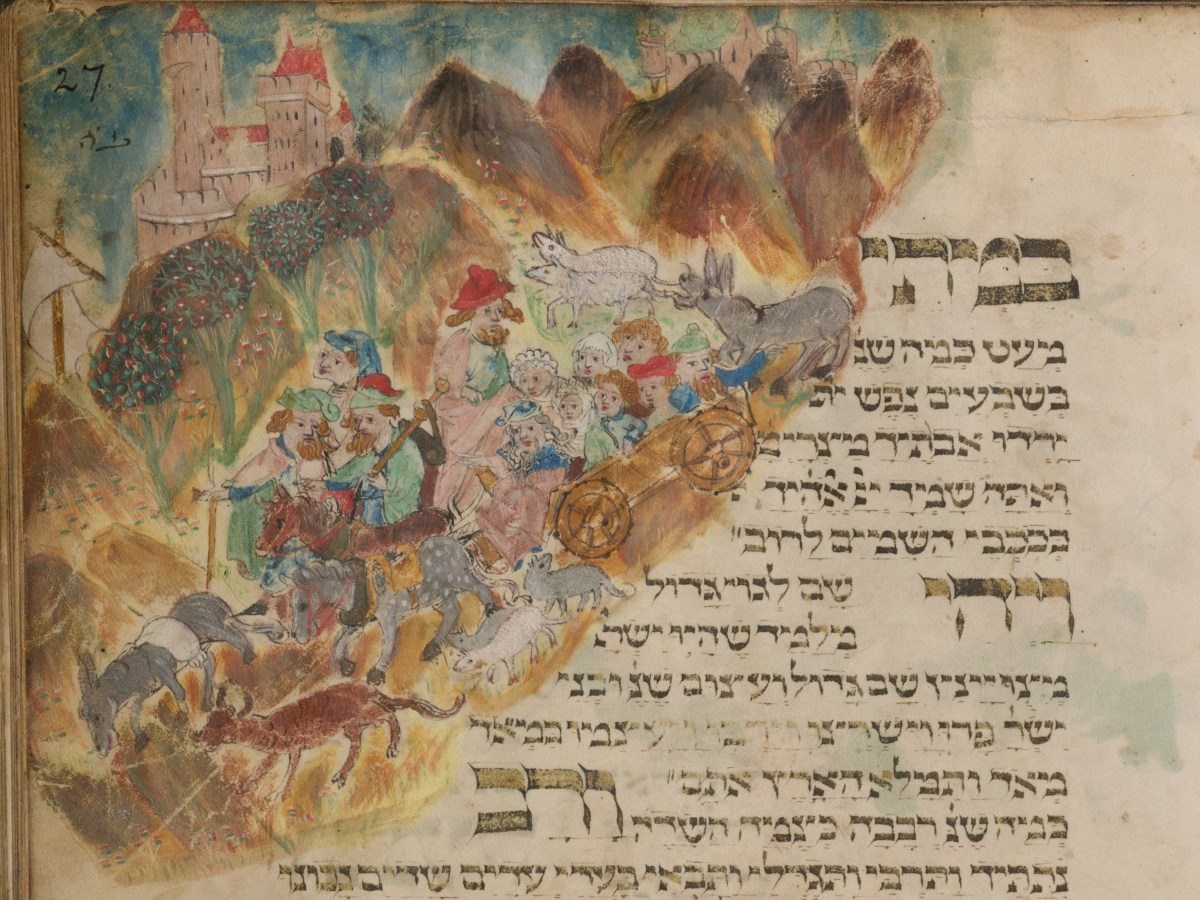 27.
במתי
מעט כמה שנ'
בשבעים נפש
ירדו אבתיך מצרימ'
ועתה שמך יי אלהיך
ככוכבי השמים לרוב"
ויהי שם לגוי גדול
מלמד שהיו ישר'
מצויינין שם גדול ועצום שנ' ובני
ישר' פרו וישרצו וירבו ויעצמו במאד
מאד ותמלא הארץ אתם"
ורב
כמה שנ' רבבה כצמח השדה
נתתיך ותרבי ותגדלי ותבאי בעדי עדים שדים נכונו